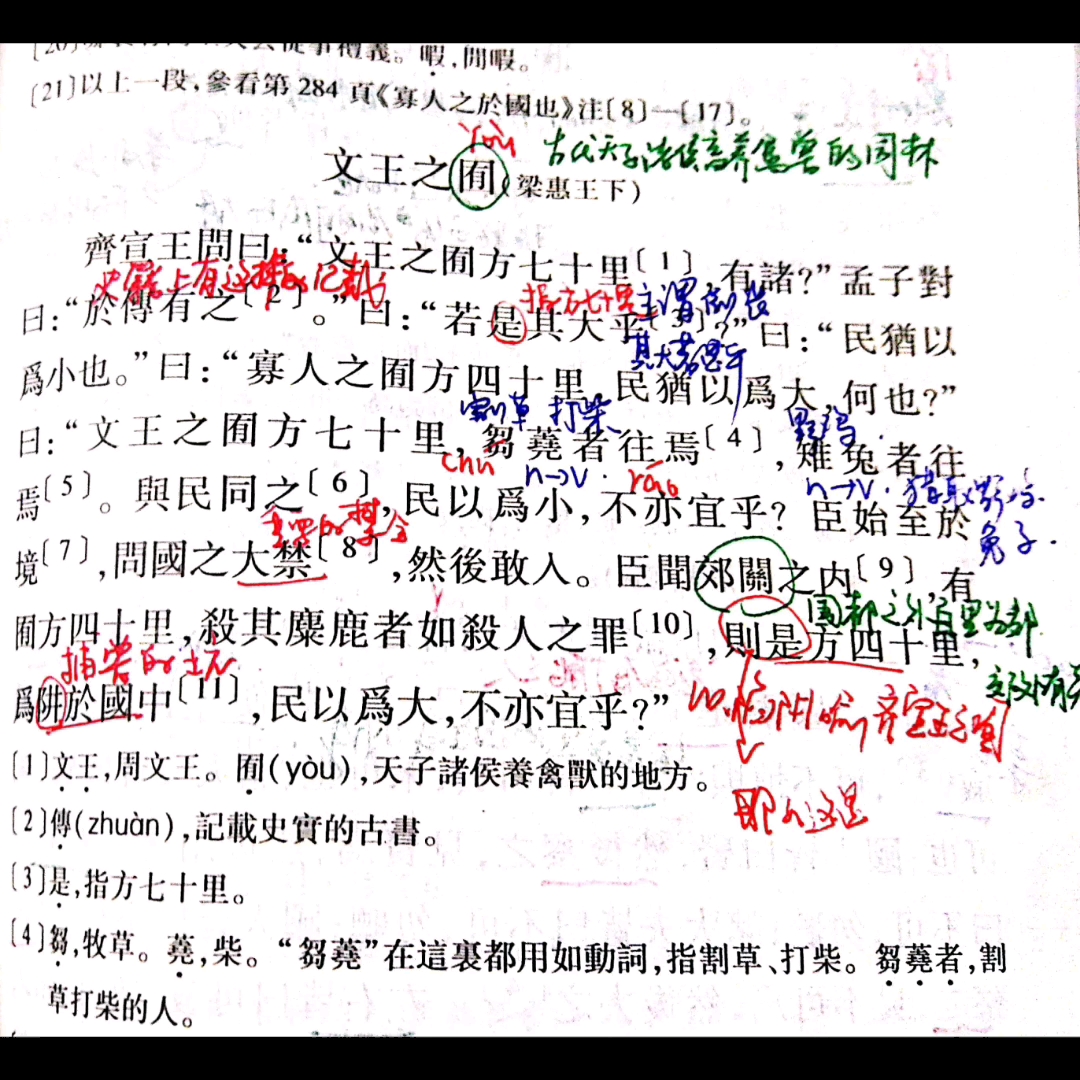 事禮義。暇,閒暇。
〔21〕以上一段,參看第284頁《寡人之於國也》注〔8〕—〔17〕。
yòu
古代天子諸侯畜养禽兽的园林
文王之囿(梁惠王下)
齊宣王問曰:“文王之囿方七十里〔1〕,有諸?”孟子對
史書上有这樣的记載
指方七十里
主谓倒装
曰:“於傳有之〔2〕。”曰:“若是其大乎〔3〕?”曰:“民猶以
其大若是乎
爲小也。”曰:“寡人之囿方四十里,民猶以爲大,何也?”
割草 打柴
野鸡
曰:“文王之囿方七十里,芻蕘者往焉〔4〕,雉兔者往
chú
n→v.
ráo
n→v.
兔子.
焉〔5〕。與民同之〔6〕,民以爲小,不亦宜乎?臣始至於
重要的禁令
境〔7〕,問國之大禁〔8〕,然後敢入。臣聞郊關之内〔9〕,有
国都之外百里为郊
囿方四十里,殺其麋鹿者如殺人之罪〔10〕,則是方四十里,
捕兽的土坑
爲阱於國中〔11〕,民以爲大,不亦宜乎?”
那么这是
〔1〕文王,周文王。囿(yòu),天子諸侯養禽獸的地方。
〔2〕傳(zhuàn),記載史實的古書。
〔3〕是,指方七十里。
〔4〕芻,牧草。蕘,柴。“芻蕘”在這裏都用如動詞,指割草、打柴。芻蕘者,割
草打柴的人。